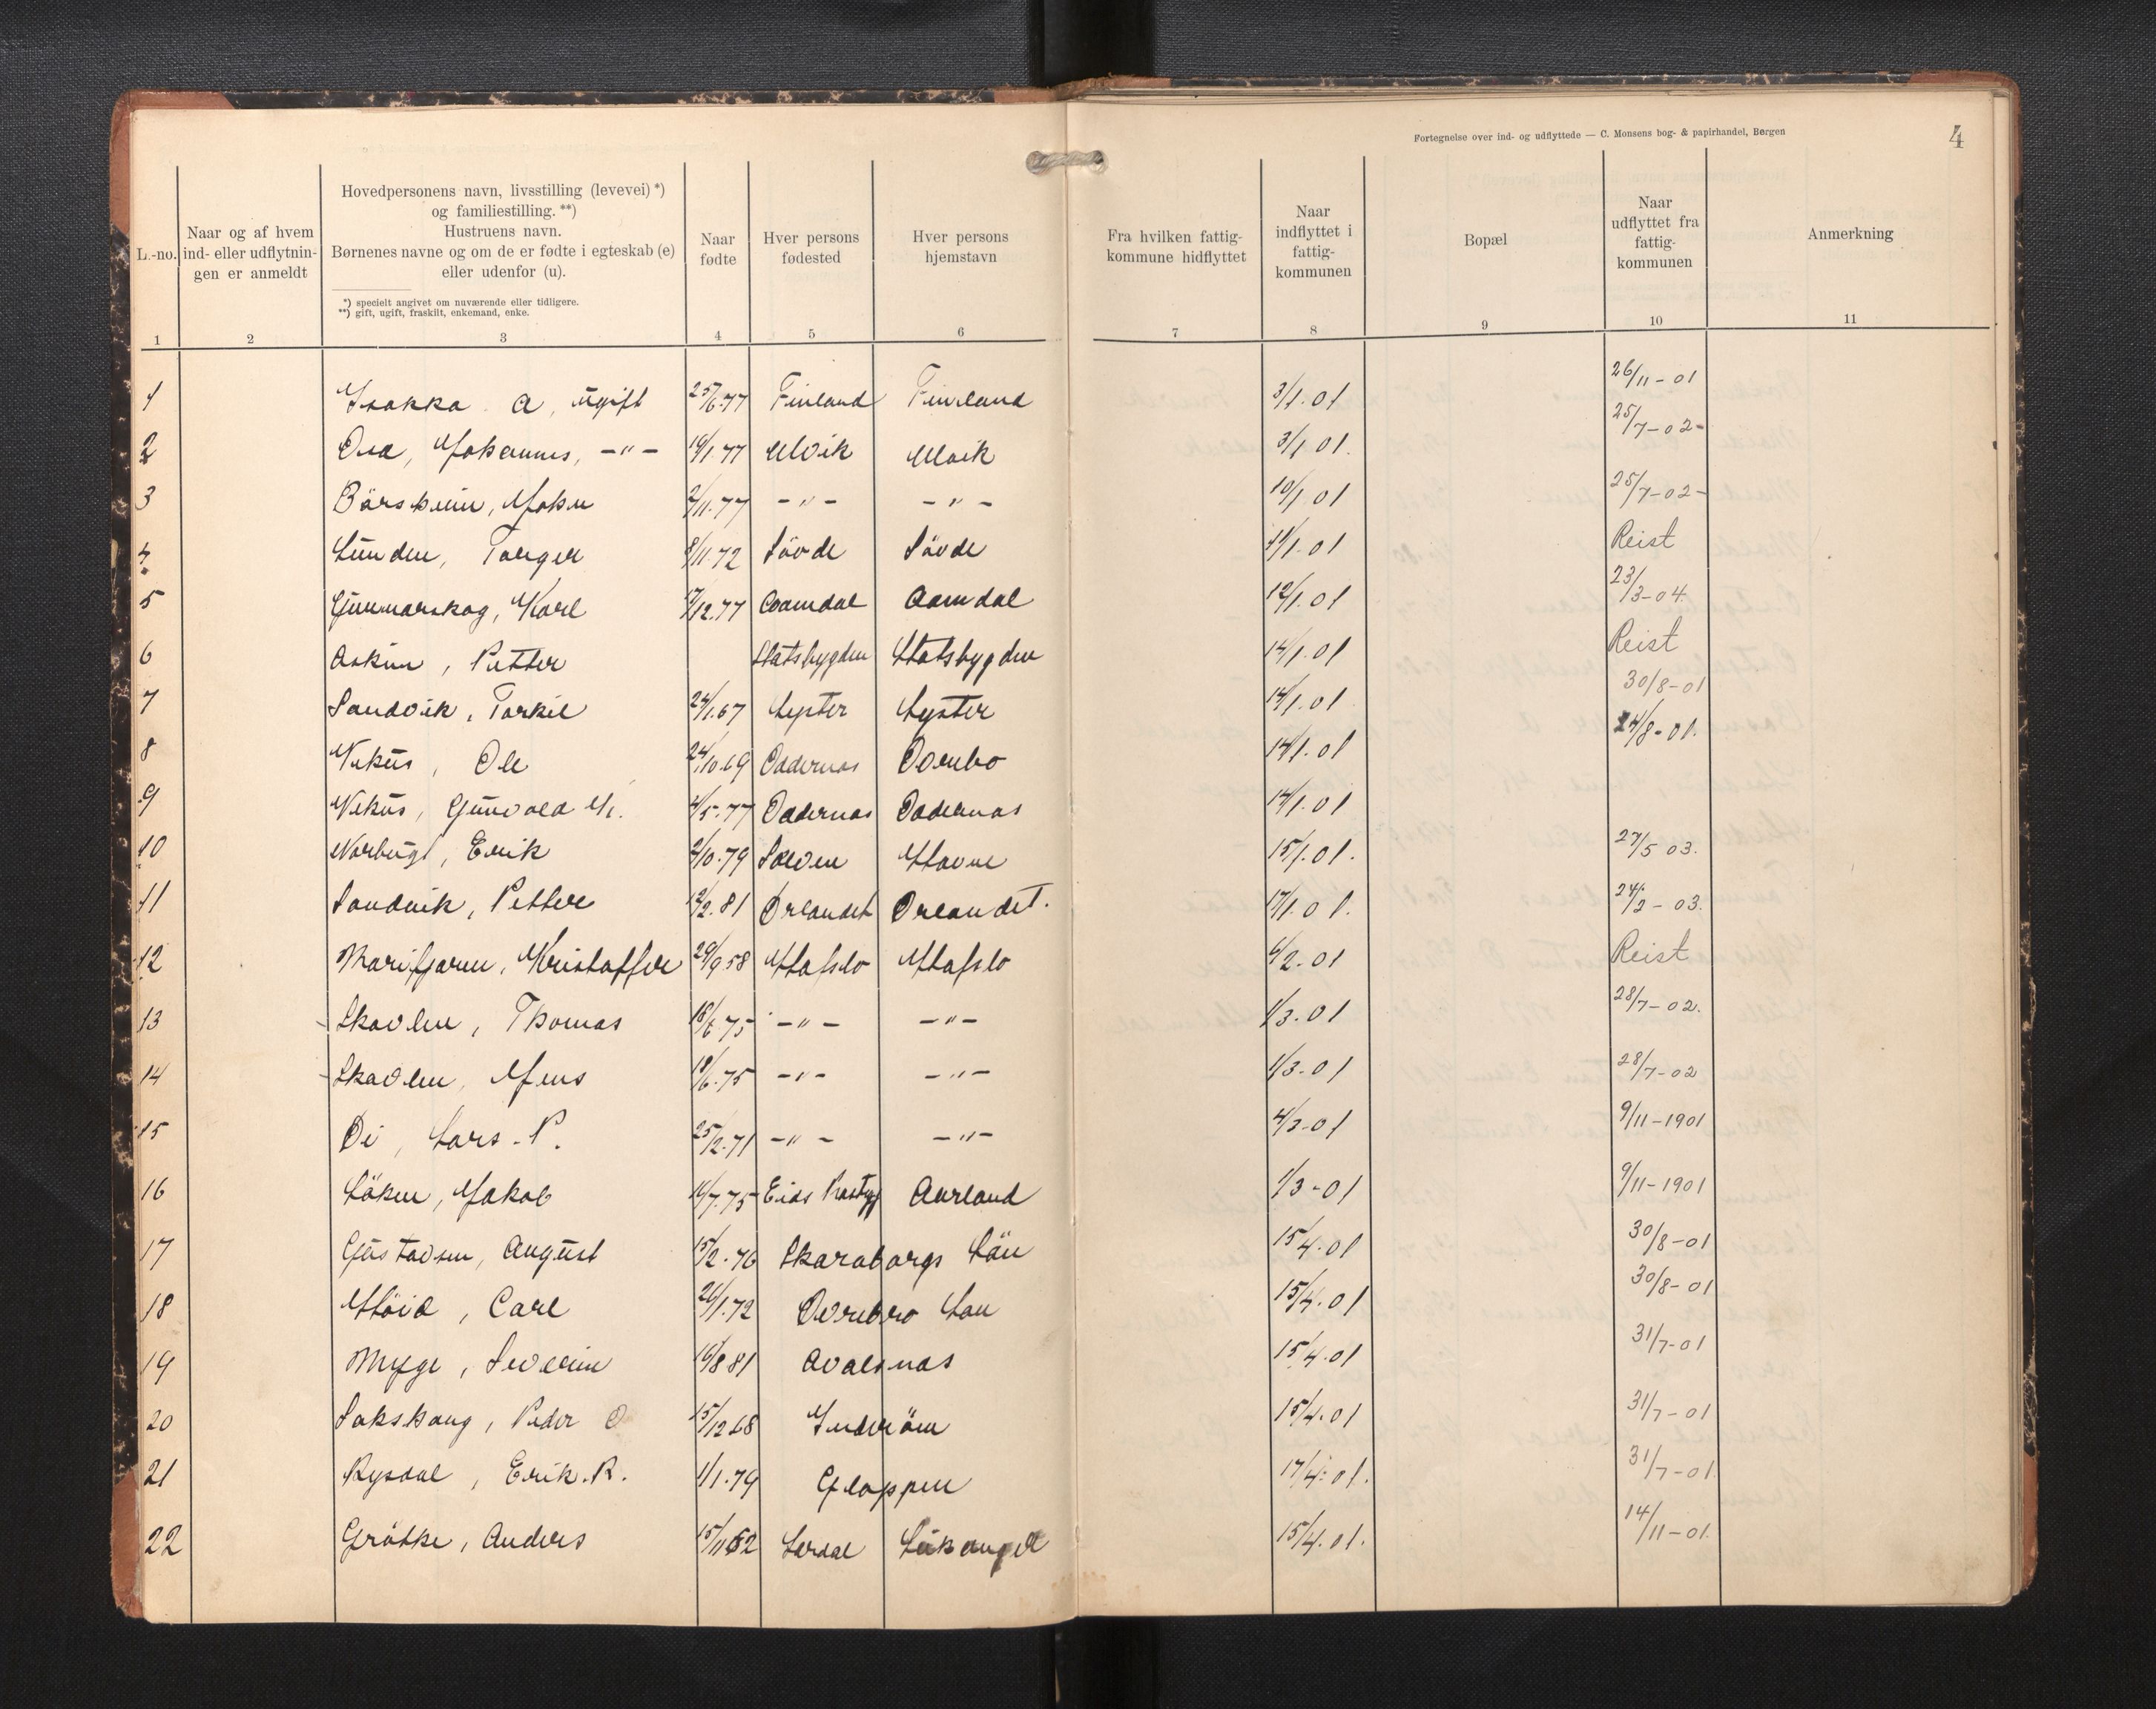 Fortegnelse over ind- og udflyttede — C. Monsens bog- & papirhandel, Bergen
4
L.-no.
Naar og af hvem
ind- eller udflytnin-
gen er anmeldt
Hovedpersonens navn, livsstilling (levevei) *)
og familiestilling. **)
Hustruens navn.
Børnenes navne og om de er fødte i egteskab (e)
eller udenfor (u).
*) specielt angivet om nuværende eller tidligere.
**) gift, ugift, fraskilt, enkemand, enke.
Naar
fødte
Hver persons
fødested
Hver persons
hjemstavn
Fra hvilken fattig-
kommune hidflyttet
Naar
indflyttet i
fattig-
kommunen
Bopæl
Naar
udflyttet fra
fattig-
kommunen
Anmerkning
1 2 3 4 5 6 7 8 9 10 11
1 Isakka A, ugift 25/6.77 Finland Finland 3/1.01 26/11-01
2 Osa, Johannes, -"- 19/1 77 Ulvik Ulvik 3/1 01. 25/7-02-
3 Bärsheim, John 2/11.77 -"- -"- 10/1 01 25/7-02-
4 Lunden, Torger 8/11.72 Sövde Sövde 11/1.01 Reist
5 Gunnarskog, Karl 17/12.77 Aamdal 12/1.01 23/3-04.
6 Petter Statsbygden Statsbygden 14/1.01 Reist
7 Sandvik, Torkil 24/1.67 Lyster Lyster 14/1.01 30/8-01
8 Ole 24/10.69 14/1.01 24/8-01.
9 Gunvald 4/5.77 14/1.01
10 Erik 2/10.79 15/1.01. 27/5 03.
11 Sandvik, Petter 12/2.81 Ørlandet Ørlandet. 17/1.01. 24/2-03.
12 Marifjæren, Kristoffer 29/9 58 Hafslo Hafslo 6/2-01 Reist
13 Skavlen, Thomas 18/6 75 -"- -"- 1/3.01 28/7-02.
14 Skavlen, Jens 18/6.75 -"- -"- 1/3-01 28/7-02
15 Øi, Lars P. 25/2.71 -"- -"- 4/3-01 9/11-1901
16 Löken, Jakob 11/7.75 Eids Aurland 1/3-01 9/11-1901
17 Gustavsen, August 15/2.76 Skaraborgs Län 15/4.01 30/8-01
18 Höid, Carl 26/1.72 Län 15/4.01 30/8-01
19 Severin 16/8 81 Avalsnas 15/4.01 31/7-01
20 Sakshaug, Peder O 15/12 68 Inderöen 15/4.01 31/7-01
21 Rysdal, Erik. R. 1/1.79 Gloppen 17/4.01. 31/7-01
22 Anders 15/11 62 Lerdal 15/4.01. 14/11-01